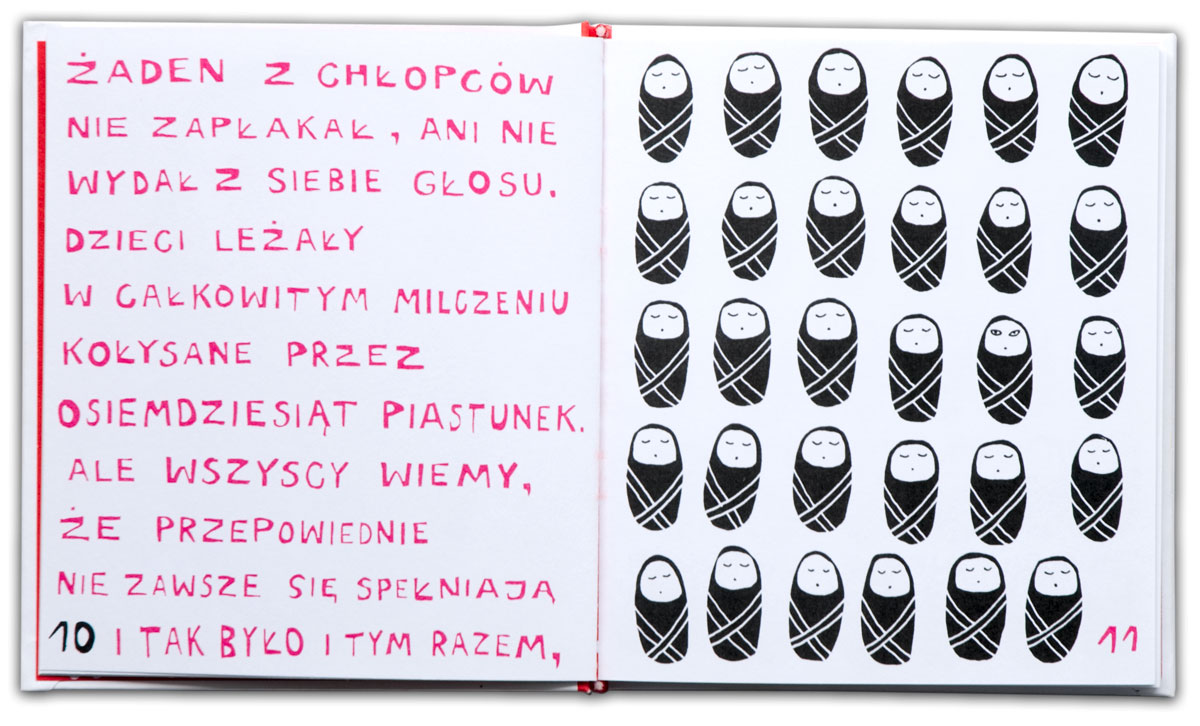 ŻADEN Z CHŁOPCÓW
NIE ZAPŁAKAŁ, ANI NIE
WYDAŁ Z SIEBIE GŁOSU.
DZIECI LEŻAŁY
W CAŁKOWITYM MILCZENIU
KOŁYSANE PRZEZ
OSIEMDZIESIĄT PIASTUNEK.
ALE WSZYSCY WIEMY,
ŻE PRZEPOWIEDNIE
NIE ZAWSZE SIĘ SPEŁNIAJĄ
10 I TAK BYŁO I TYM RAZEM,
11